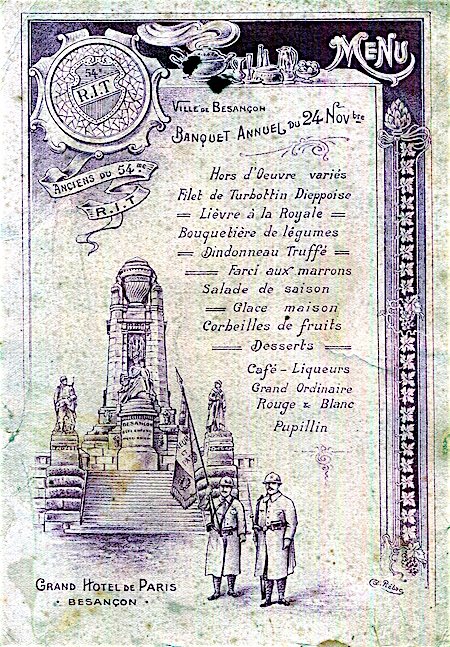 MENU
54
R.I.T
ANCIENS DU 54me
R.I.T
VILLE DE BESANÇON
BANQUET ANNUEL DU 24 Novbre
Hors d'Oeuvre variés
Filet de Turbottin Dieppoise
Lièvre à la Royale
Bouquetière de légumes
Dindonneau Truffé
Farci aux marrons
Salade de saison
Glace maison
Corbeilles de fruits
Desserts
Café - Liqueurs
Grand Ordinaire
Rouge & Blanc
Pupillin
BESANÇON
GRAND HOTEL DE PARIS
BESANÇON